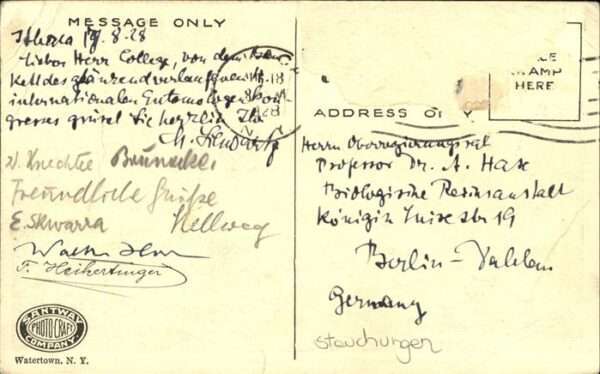 MESSAGE ONLY
Ithaca 19.8.28
Lieber Herr College, von dem
des glänzend verlaufenen
internationalen Entomologen Kon-
gresses grüsst Sie herzlich Ihr
M.
Freundliche Grüße
E. Skwarra Hellweg
F. Heikertinger
SANTWAY
PHOTO-CRAFT
COMPANY
Watertown, N. Y.
HERE
ADDRESS
Herrn Oberregierungsrat
Professor Dr. A. Hase
Biologische Reichsanstalt
Königin Luise Str 19
Berlin – Dahlem
Germany
stauchungen